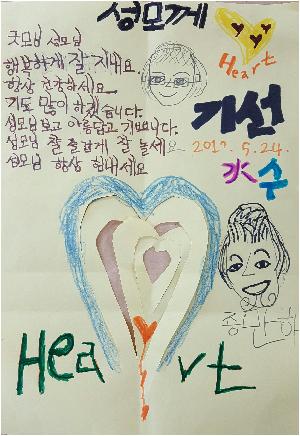 성모께
Heart
성모님
행복하게 잘 지내요.
항상 건강하세요.
기도 많이 하겠습니다.
성모님 보고 아름답고 기쁘니다.
성모님 참 즐겁게 잘 놀세요
성모님 항상 힘내세요
기선
5.24.
水 수
Hea rt